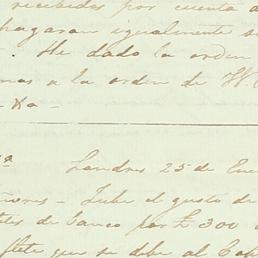 recibidos por cuenta d
hagaran igualmente s
. He dado la orden
mas a la orden de W.
Londres 25 de Ene
ñores - Tube el gusto de
tes de banco por £ 300
flete que se debe al Cap